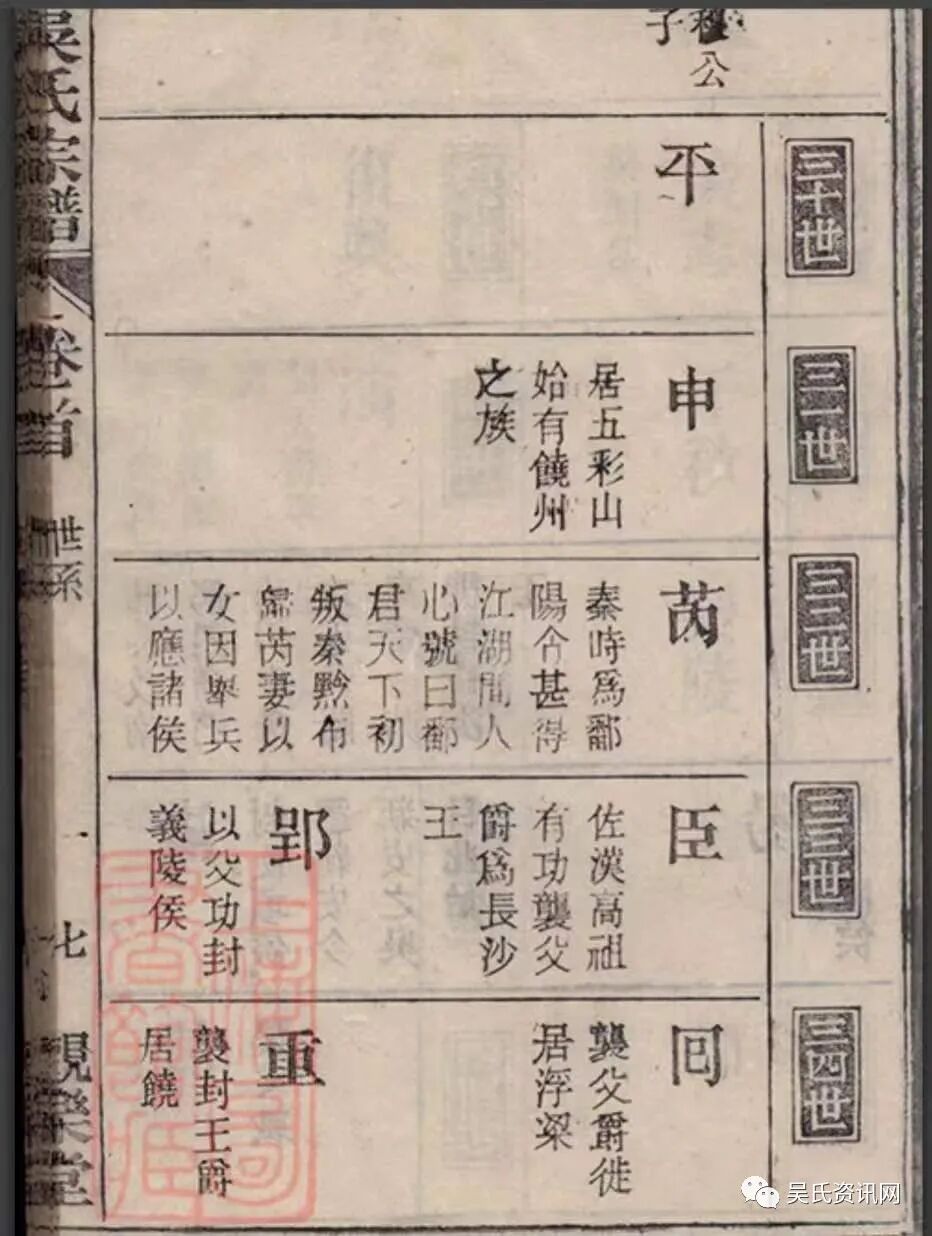 穆公
子
三十世
平
三一世
申
居五彩山
始有饒州
之族
三二世
芮
秦時為鄱
陽令甚得
江湖間人
心號曰鄱
君天下初
叛秦黥布
歸芮妻以
女因舉兵
以應諸侯
三三世
臣
佐漢高祖
有功襲父
爵為長沙
王
郢
以父功封
義陵侯
三四世
囘
襲父爵徙
居浮梁
重
襲封王爵
居饒
吳氏宗譜
卷首
世系
七
吴氏资讯网